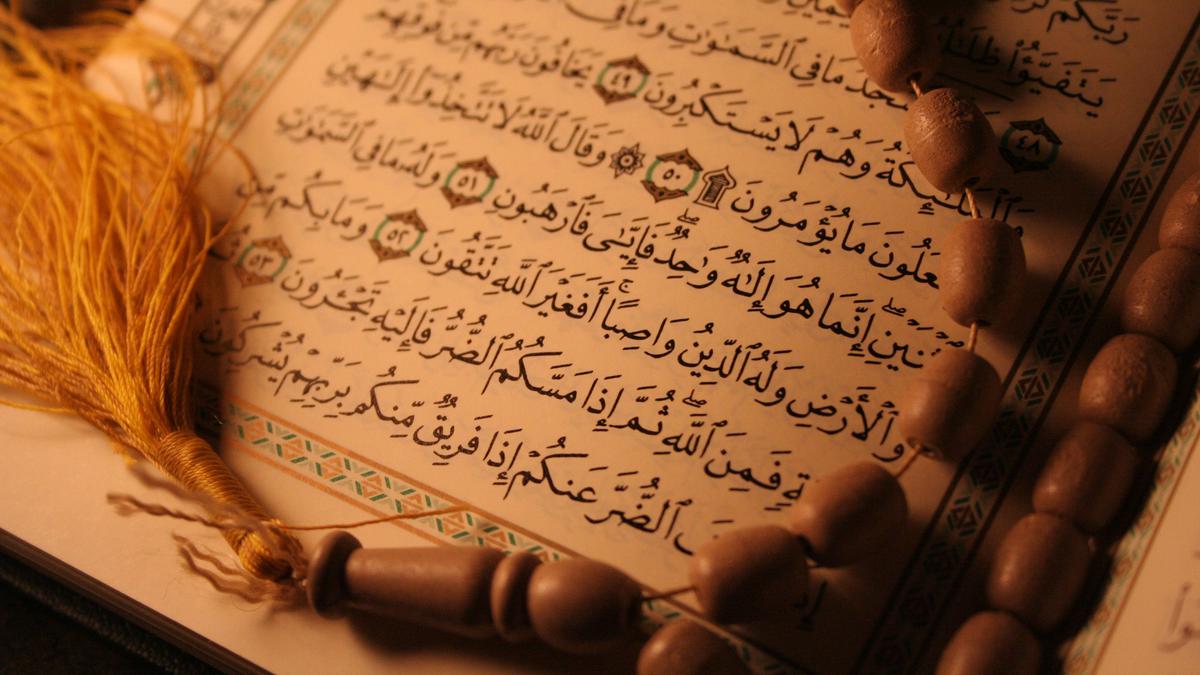 رَبَّكُمْ
يَتَفَيَّؤُا۟ ظِلَٰلُهُۥ
٤٨ يَسْجُدُ مَا فِى ٱلسَّمَٰوَٰتِ وَمَا فِى
ٱلْمَلَٰٓئِكَةُ وَهُمْ لَا يَسْتَكْبِرُونَ ٤٩ يَخَافُونَ رَبَّهُم مِّن فَوْقِهِمْ
يَفْعَلُونَ مَا يُؤْمَرُونَ ۩ ٥٠ ۞ وَقَالَ ٱللَّهُ لَا تَتَّخِذُوٓا۟ إِلَٰهَيْنِ
ٱثْنَيْنِ ۖ إِنَّمَا هُوَ إِلَٰهٌ وَٰحِدٌ ۖ فَإِيَّٰىَ فَٱرْهَبُونِ ٥١ وَلَهُۥ مَا فِى ٱلسَّمَٰوَٰتِ
وَٱلْأَرْضِ وَلَهُ ٱلدِّينُ وَاصِبًا ۚ أَفَغَيْرَ ٱللَّهِ تَتَّقُونَ ٥٢ وَمَا بِكُم مِّن
فَمِنَ ٱللَّهِ ۖ ثُمَّ إِذَا مَسَّكُمُ ٱلضُّرُّ فَإِلَيْهِ تَجْـَٔرُونَ ٥٣
ٱلضُّرَّ عَنكُمْ إِذَا فَرِيقٌ مِّنكُم بِرَبِّهِمْ يُشْرِكُونَ